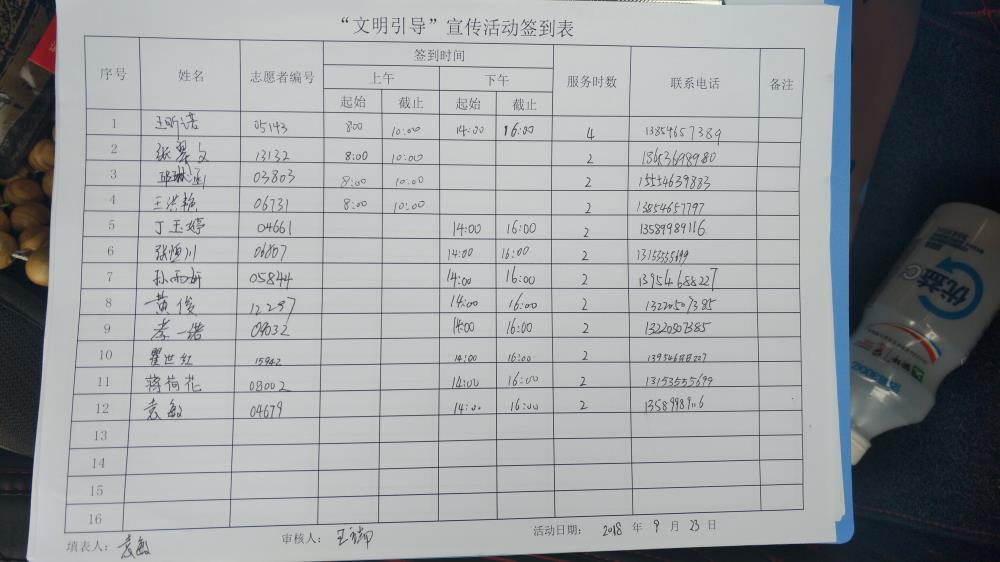 “文明引导”宣传活动签到表
序号 姓名 志愿者编号 签到时间 服务时数 联系电话 备注
上午 下午
起始 截止 起始 截止
1 王昕诺 05143 8:00 10:00 14:00 16:00 4 13854657389
2 张翠文 13132 8:00 10:00 2 13653698980
3 邱琳涵 03803 8:00 10:00 2 15554639883
4 王洪艳 06731 8:00 10:00 2 13854657797
5 丁玉婷 04661 14:00 16:00 2 13589989116
6 张恒川 06807 14:00 16:00 2 13153555699
7 孙雨妍 05844 14:00 16:00 2 13954688227
8 黄俊 12297 14:00 16:00 2 13220507385
9 李一诺 09032 14:00 16:00 2 13220507385
10 瞿世红 15942 14:00 16:00 2 13954688227
11 蒋荷花 08002 14:00 16:00 2 13153555699
12 袁敏 04679 14:00 16:00 2 13589989116
13
14
15
16
填表人：袁敏 审核人：王 活动日期： 2018 年 9 月 23 日
优益C